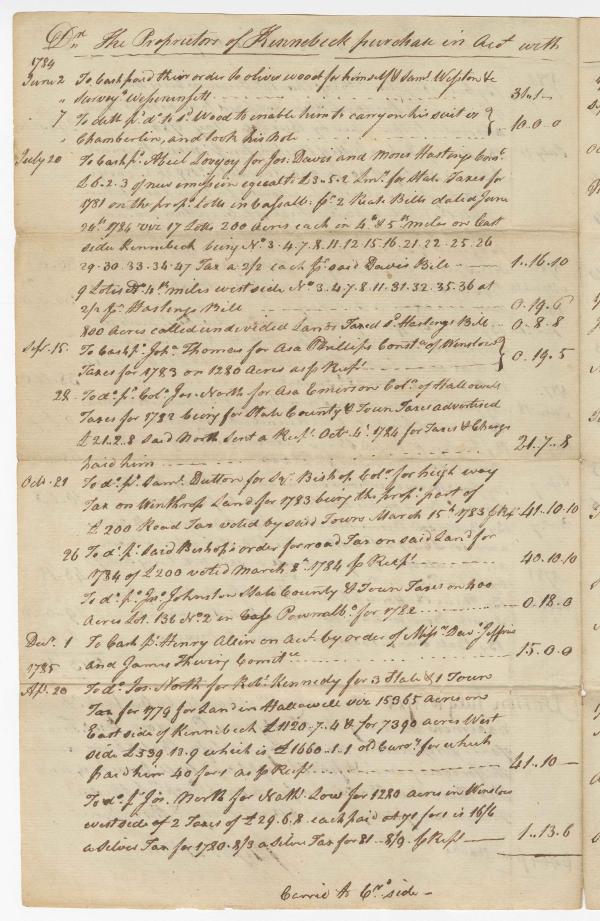 Dr. The Proprietors of Kennebeck purchase in Acct with
1784
June 2 To Cash paid their order to oliver wood for himself & Saml Weston &c
" Survey Wesserunsett 31..1
" 7 To do pd to sd Wood to enable him to carry on his suit vs
" Chamberlin, and took his Note 10.0.0
July 20 To Cash pd Abiel Lovejoy for Jos. Davis and Moses Hastings Const
£6.2.3 of new emission equal to £3.5.2 for State Taxes for
1781 on the prop. Lotts in Vassalbo pr 2 Rect Bills dated June
24th 1784 viz 17 Lotts 200 Acres each in 4th & 5th miles on East
side Kennebeck being No 3.4.7.8.11.12.15.16.21.22.25.26
29.30.33.34.47 Tax a 2/2 each pr said Davis Bill 1..16.10
9 Lotts Do 4th miles west side No 3.4.7.8.11.31.32.35.36 at
2/2 pr Hastings Bill 0.19.6
800 Acres called undivided Lands Taxed pr Hastings Bill 0.8.8
Sept. 15. To Cash pd Jona Thomas for Asa Phillips Consta of Winslow
Taxes for 1783 on 1280 Acres as pr Rect 0.19.5
28 To do pd Colo Jos. North for Asa Emerson Colr of Hallowell
Taxes for 1782 being for State County & Town Taxes advertised
£21.2.8 said North sent a Rect Octr 4. 1784 for Taxes & Charge
paid him 21.7.8
Octr. 21 To do pd Saml Dutton for Bishop Colr for high way
Tax on Winthrop Land for 1783 being the prop. part of
£200 Road Tax voted by said Town March 15th 1783 pr Rect 41.10.10
26 To do pd said Bishop's order for road Tax on said Land for
1784 of £200 voted March 8th 1784 pr Rect 40.10.10
To do pd Jno Johnston State County & Town Taxes on 400
Acres Lot. 136 No 2 in Pownalbo for 1782 0.18.0
Decr. 1 To Cash pd Henry Allin on Acct by order of Messrs Davd Jeffries
and James Thwing Comtee 15.0.0
1785
Apl. 20 To do Jos. North for Robt Kennedy for 3 State & 1 Town
Tax for 1779 for Land in Hallowell viz 15365 acres on
East side of Kennebeck £1120.7.4 & for 7390 acres West
side £539.13.9 which is £1660.1.1 old Curoy for which
paid him 40 for 1 as pr Rect 41..10
To do pd Jos. North for Nathl Low for 1280 acres in Winslow
west side of 2 Taxes of £29.6.8 each paid at 71 for 1 is 16/6
a Silver Tax for 1780.8/3 a Silver Tax for 81. 8/9 pr Rect 1..13.6
Carrid to Cr side